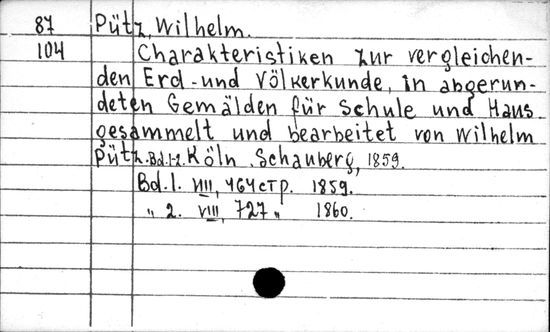 87 Pütz, Wilhelm.
104 Charakteristiken zur vergleichen-
den Erd- und Völkerkunde, in abgerun-
deten Gemälden für Schule und Haus
gesammelt und bearbeitet von Wilhelm
Pütz. Bd. 1-2. Köln, Schauberg, 1859.
Bd. 1. VIII, 464 стр. 1859.
„ 2. VIII, 727 „ 1860.